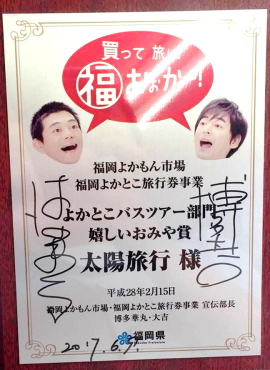 買って 旅して
福 おおかー!
福岡よかもん市場
福岡よかとこ旅行券事業
よかとこバスツアー部門
嬉しいおみや賞
太陽旅行 様
平成28年2月15日
福岡よかもん市場・福岡よかとこ旅行券事業 宣伝部長
博多華丸・大吉
福岡県
2017.6.7.